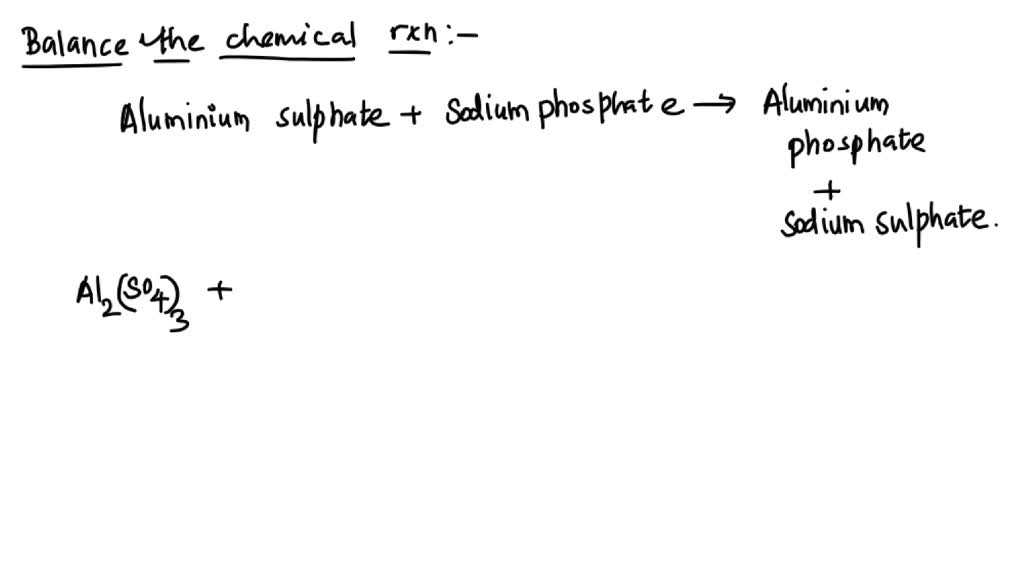 Balance the chemical rxn:-
Aluminium sulphate + Sodium phosphate → Aluminium
phosphate
+
Sodium sulphate.
Al₂(SO₄)₃ +